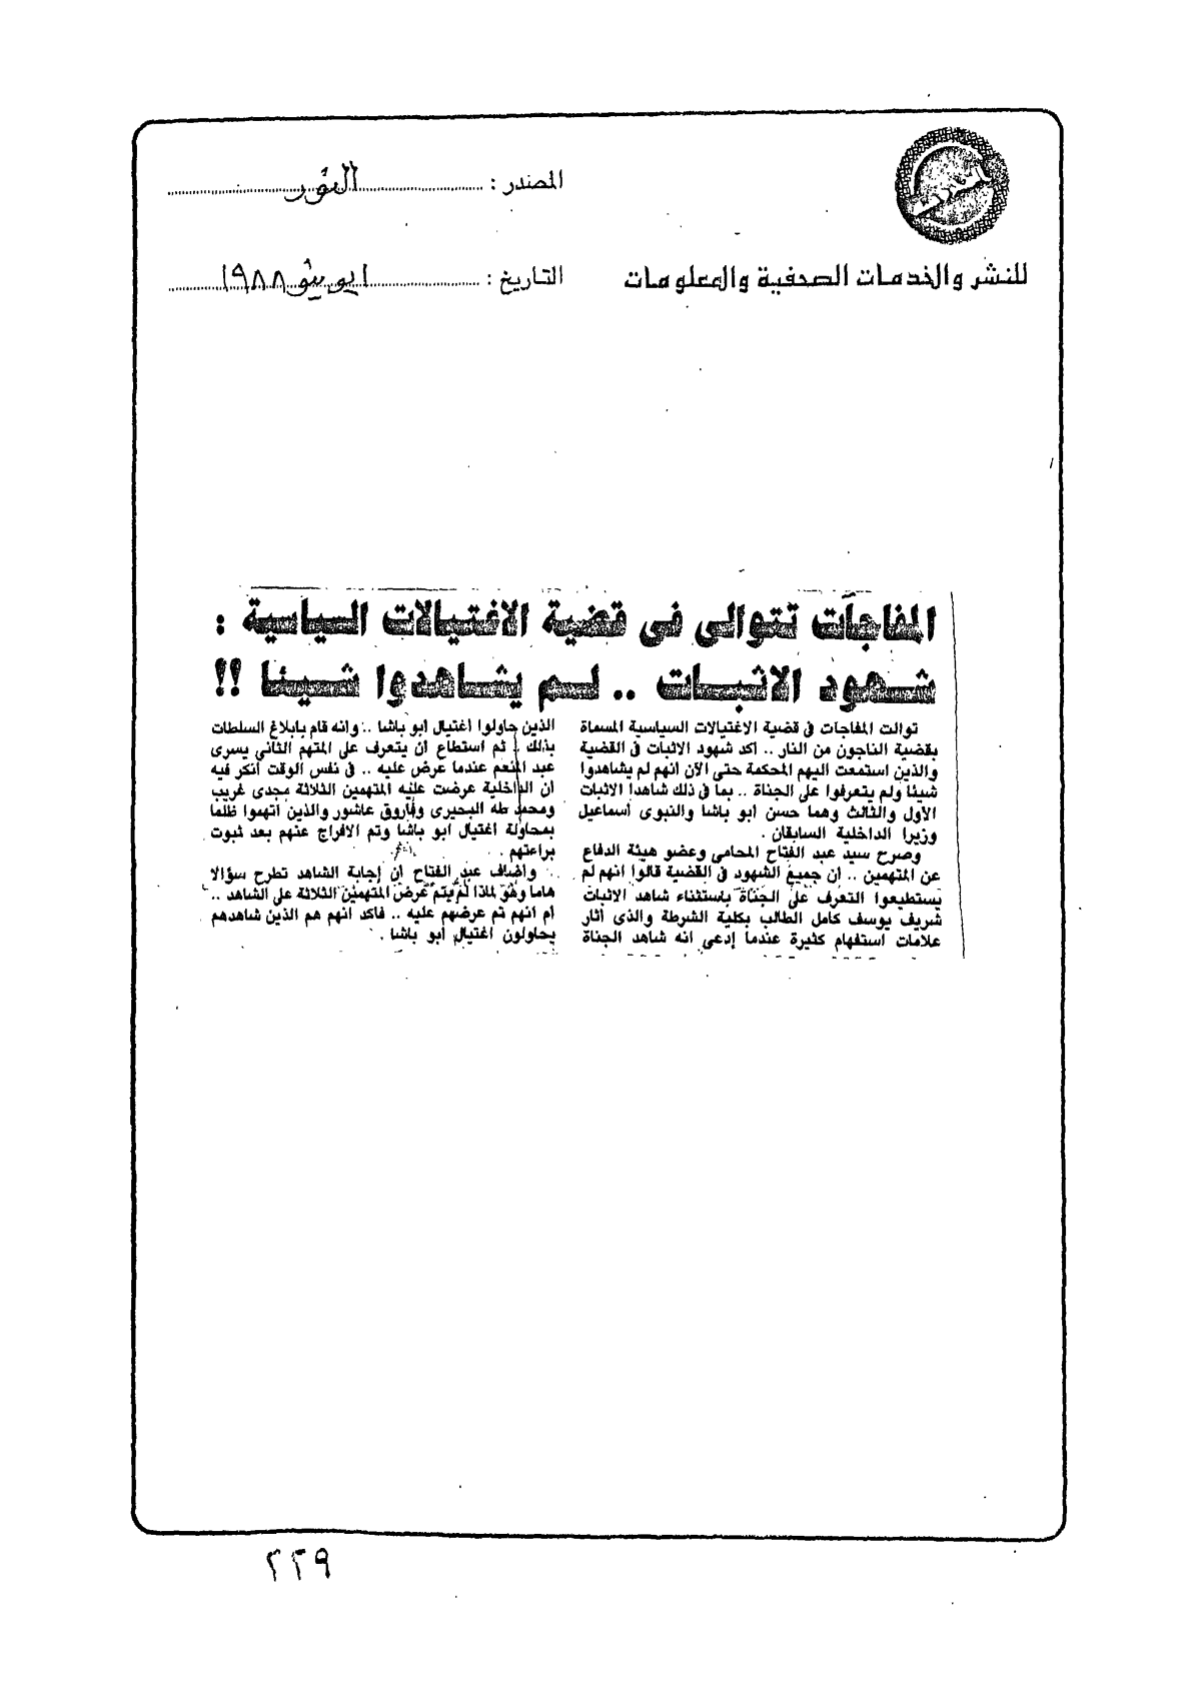 المصدر : النور
للنشر والخدمات الصحفية والمعلومات
التاريخ : ١ يونيو ١٩٨٨
المفاجآت تتوالى فى قضية الاغتيالات السياسية :
شهود الاثبات .. لم يشاهدوا شيئا !!
توالت المفاجات فى قضية الاغتيالات السياسية المسماة
بقضية الناجون من النار .. اكد شهود الاثبات فى القضية
والذين استمعت اليهم المحكمة حتى الآن انهم لم يشاهدوا
شيئا ولم يتعرفوا على الجناة .. بما فى ذلك شاهدا الاثبات
الأول والثالث وهما حسن ابو باشا والنبوى أسماعيل
وزيرا الداخلية السابقان .
وصرح سيد عبد الفتاح المحامى وعضو هيئة الدفاع
عن المتهمين .. ان جميع الشهود فى القضية قالوا انهم لم
يستطيعوا التعرف على الجناة باستثناء شاهد الاثبات
شريف يوسف كامل الطالب بكلية الشرطة والذى أثار
علامات استفهام كثيرة عندما إدعى انه شاهد الجناة
الذين حاولوا اغتيال ابو باشا .. وانه قام بابلاغ السلطات
بذلك ثم استطاع ان يتعرف على المتهم الثانى يسرى
عبد المنعم عندما عرض عليه .. فى نفس الوقت أنكر فيه
ان الداخلية عرضت عليه المتهمين الثلاثة مجدى غريب
ومحمد طه البحيرى وفاروق عاشور والذين اتهموا ظلما
بمحاولة اغتيال ابو باشا وتم الافراج عنهم بعد ثبوت
براءتهم .
وأضاف عبد الفتاح ان إجابة الشاهد تطرح سؤالا
هاما وهو لماذا لم يتم عرض المتهمين الثلاثة على الشاهد ..
ام انهم تم عرضهم عليه .. فاكد انهم هم الذين شاهدهم
يحاولون اغتيال أبو باشا .
٢٢٩